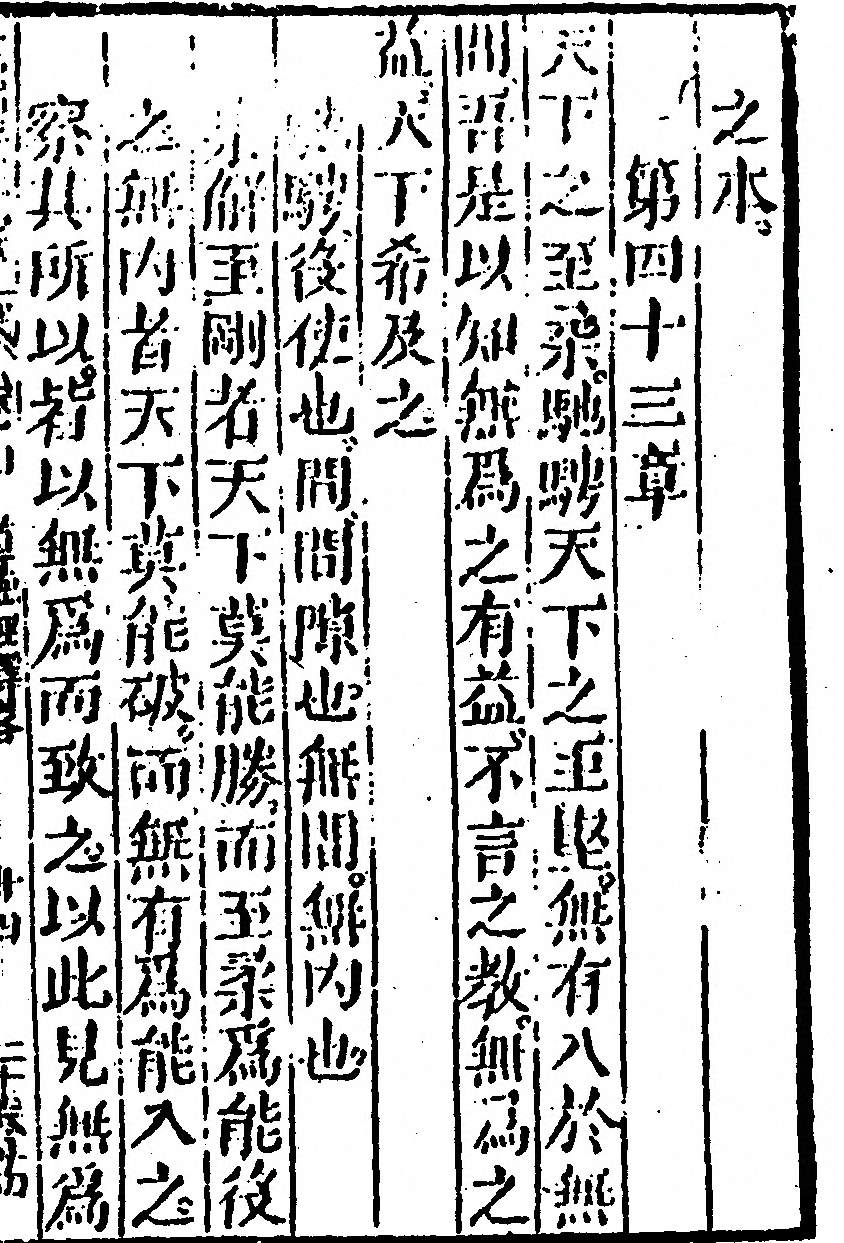 之本。
第四十三章
天下之至柔。馳騁天下之至堅。無有入於無
間吾是以知無為之有益。不言之教。無為之
益。天下希及之
騁役使也。間間隙也。無間。無內也
水解至剛者天下莫能勝。而至柔為能役
之無內者天下莫能破。而無有為能入之。
察其所以。皆以無為而致之。以此見無為